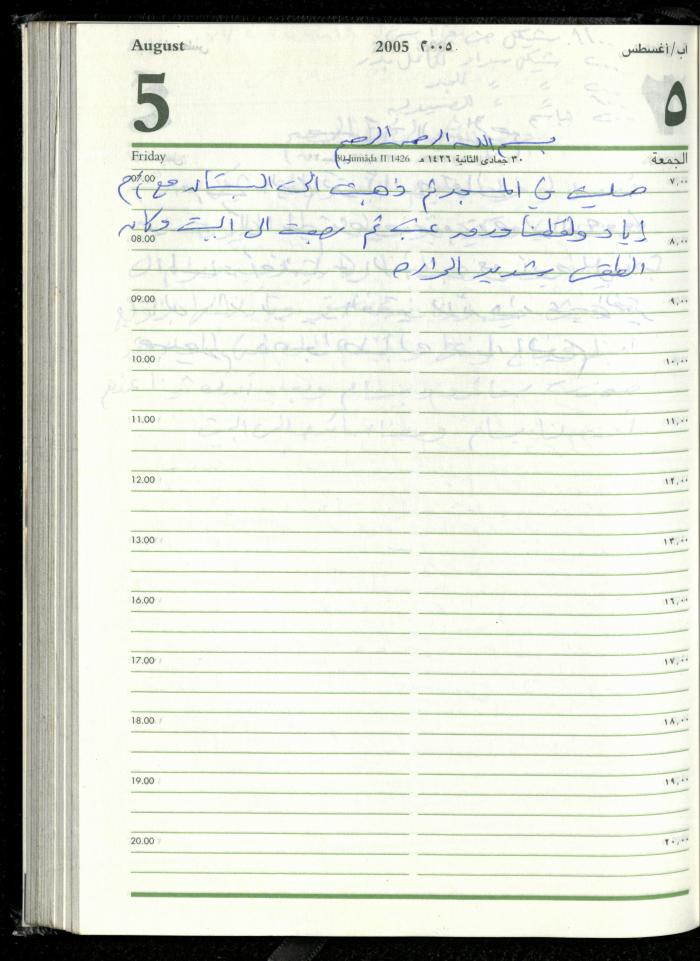 August 2005 ٢٠٠٥ آب/أغسطس
5 ٥
بسم الله الرحمن الرحيم
Friday 30 Jumāda II 1426 ٣٠ جمادى الثانية ١٤٢٦ هـ الجمعة
صليت في المسجد ثم ذهبت الى البستان مع
اياد ولقطنا عنب ثم رجعت الى البيت وكان
الطقس شديد الحراره
07.00 ٧,٠٠
08.00 ٨,٠٠
09.00 ٩,٠٠
10.00 ١٠,٠٠
11.00 ١١,٠٠
12.00 ١٢,٠٠
13.00 ١٣,٠٠
16.00 ١٦,٠٠
17.00 ١٧,٠٠
18.00 ١٨,٠٠
19.00 ١٩,٠٠
20.00 ٢٠,٠٠